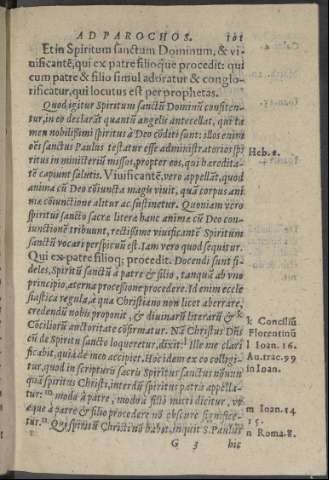 AD PAROCHOS. 101
Et in Spiritum sanctum Dominum, & vi-
uificantē, qui ex patre filioque procedit: qui
cum patre & filio simul adoratur & conglo-
rificatur, qui locutus est per prophetas.
Quod igitur Spiritum sanctū Dominū confiten-
tur, in eo declarāt quantū angelis antecellat, qui ta
men nobilißimi spiritus à Deo cōditi sunt: illos enim
oēs sanctus Paulus testatur esse administratorios spi
ritus in ministeriū missos, propter eos, qui hæredita-
tē capiunt salutis. Viuificantē, vero appellāt, quod
anima cū Deo cōiuncta magis viuit, quā corpus ani
mæ cōiunctione alitur ac sustinetur. Quoniam vero
spiritui sancto sacræ literæ hanc animæ cū Deo con-
iunctionē tribuunt, rectißime viuificantē Spiritum
sanctū vocari perspicuū est. Iam vero quod sequitur.
Qui ex patre filioq; procedit. Docendi sunt fi-
deles, Spiritū sanctū à patre & filio, tanquā ab vno
principio, æterna processione procedere. Id enim eccle
siastica regula, à qua Christiano non licet aberrare,
credendū nobis proponit, & diuinarū literarū & k
Cōciliorū auctoritate cōfirmatur. Nā Christus Dn̄s
cū de Spiritu sancto loqueretur, dixit: l Ille me clari
ficabit, quia de meo accipiet. Hoc idem ex eo colligi-
tur, quod in scripturis sacris Spiritus sanctus nōnun
quā spiritus Christi, interdū spiritus patris appella-
tur: m modo à patre, modo à filio mitti dicitur, vt
æque à patre & filio procedere nō obscure significe-
tur. n Qui spiritū Christi nō habet, inquit S. Paulus
G 3 hic
Heb. 1.
k Conciliū
Florentinū
l Ioan. 16.
Au. trac. 99
in Ioan.
m Ioan. 14
15.
n Roma. 8.